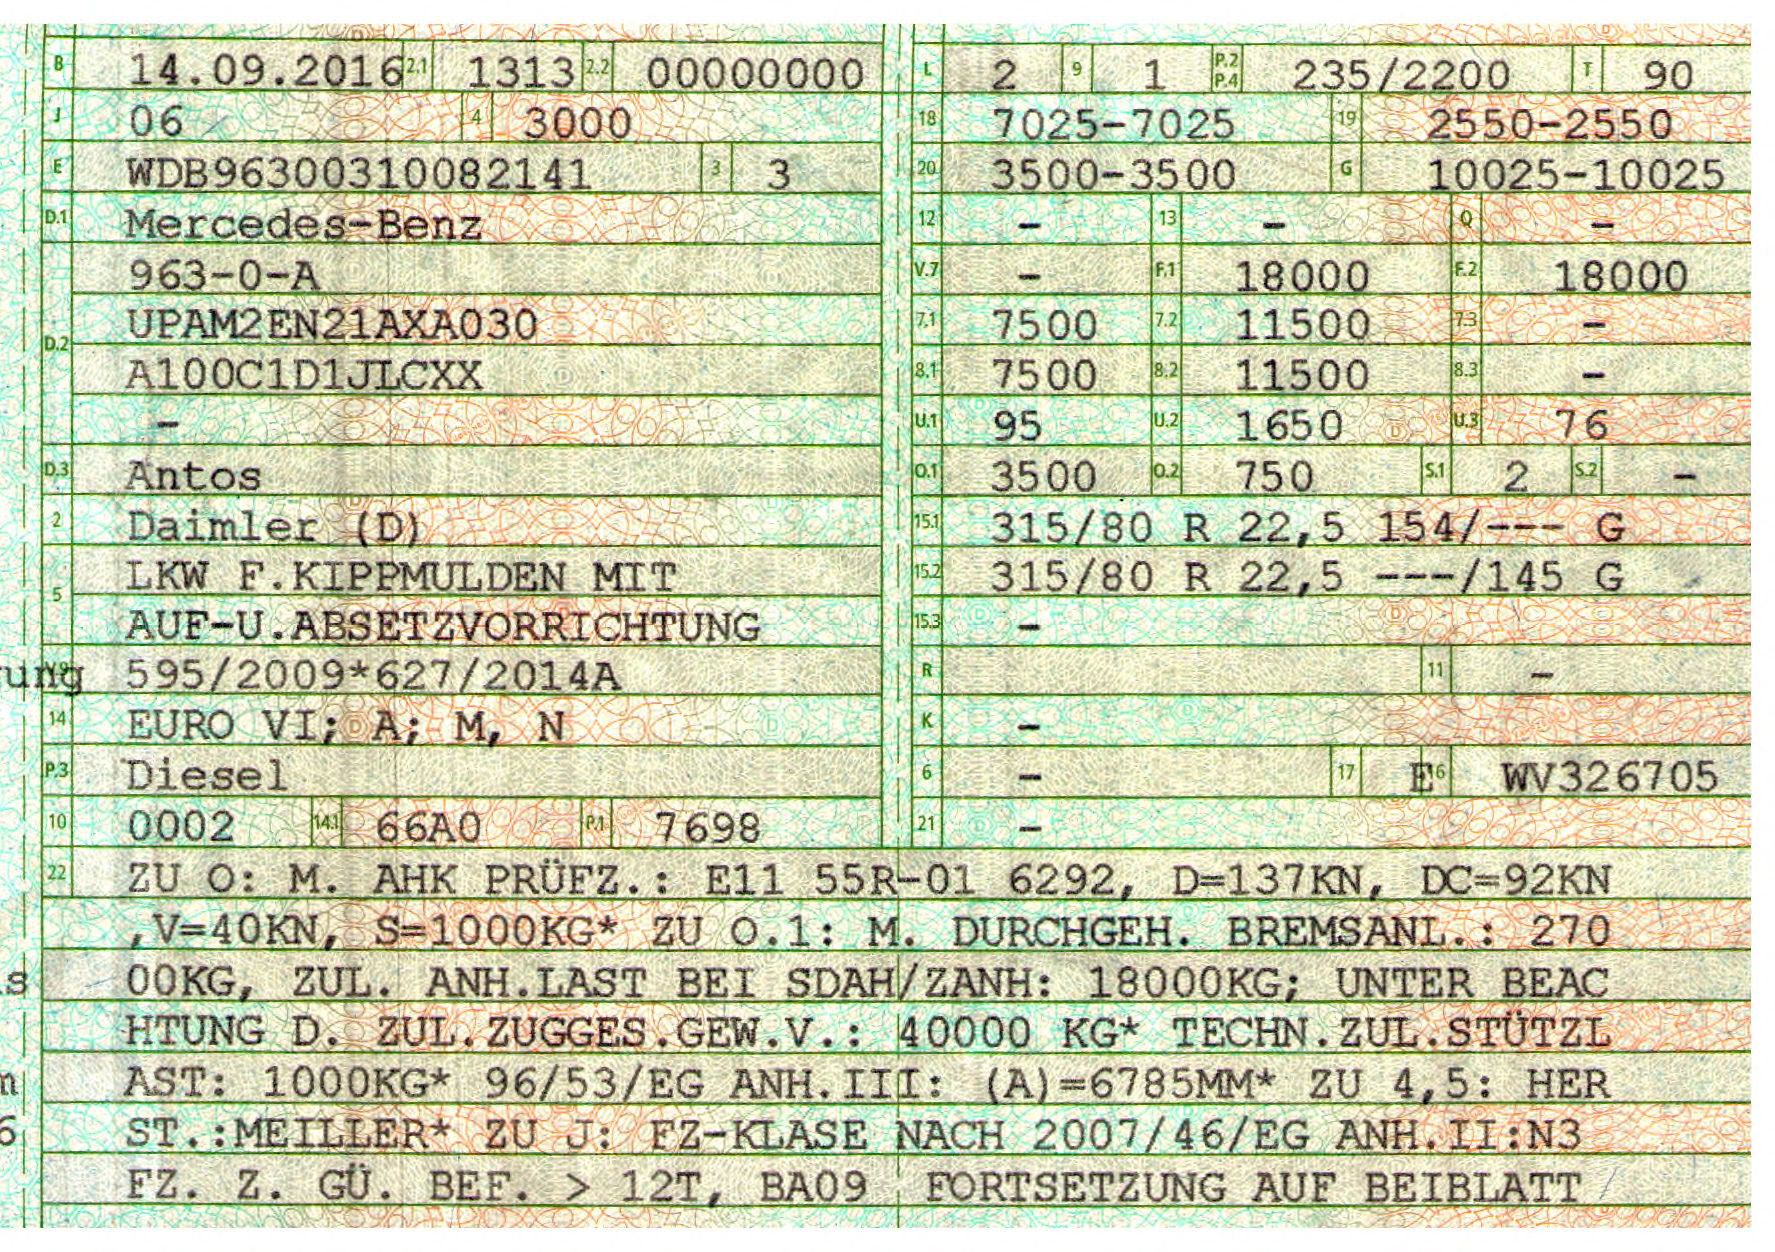 B 14.09.2016 2.1 1313 2.2 00000000
J 06 4 3000
E WDB96300310082141 3 3
D.1 Mercedes-Benz
963-0-A
D.2 UPAM2EN21AXA030
A100C1D1JLCXX
-
D.3 Antos
2 Daimler (D)
5 LKW F.KIPPMULDEN MIT
AUF-U.ABSETZVORRICHTUNG
V.9 595/2009*627/2014A
14 EURO VI; A; M, N
P.3 Diesel
10 0002 14.1 66A0 P.1 7698
L 2 9 1 P.2 P.4 235/2200 T 90
18 7025-7025 19 2550-2550
20 3500-3500 G 10025-10025
12 - 13 - Q -
V.7 - F.1 18000 F.2 18000
7.1 7500 7.2 11500 7.3 -
8.1 7500 8.2 11500 8.3 -
U.1 95 U.2 1650 U.3 76
O.1 3500 O.2 750 S.1 2 S.2 -
15.1 315/80 R 22,5 154/--- G
15.2 315/80 R 22,5 ---/145 G
15.3 -
R 11 -
K -
6 - 17 E 16 WV326705
21 -
22 ZU O: M. AHK PRÜFZ.: E11 55R-01 6292, D=137KN, DC=92KN
,V=40KN, S=1000KG* ZU O.1: M. DURCHGEH. BREMSANL.: 270
00KG, ZUL. ANH.LAST BEI SDAH/ZANH: 18000KG; UNTER BEAC
HTUNG D. ZUL.ZUGGES.GEW.V.: 40000 KG* TECHN.ZUL.STÜTZL
AST: 1000KG* 96/53/EG ANH.III: (A)=6785MM* ZU 4,5: HER
ST.:MEILLER* ZU J: FZ-KLASE NACH 2007/46/EG ANH.II:N3
FZ. Z. GÜ. BEF. > 12T, BA09 FORTSETZUNG AUF BEIBLATT